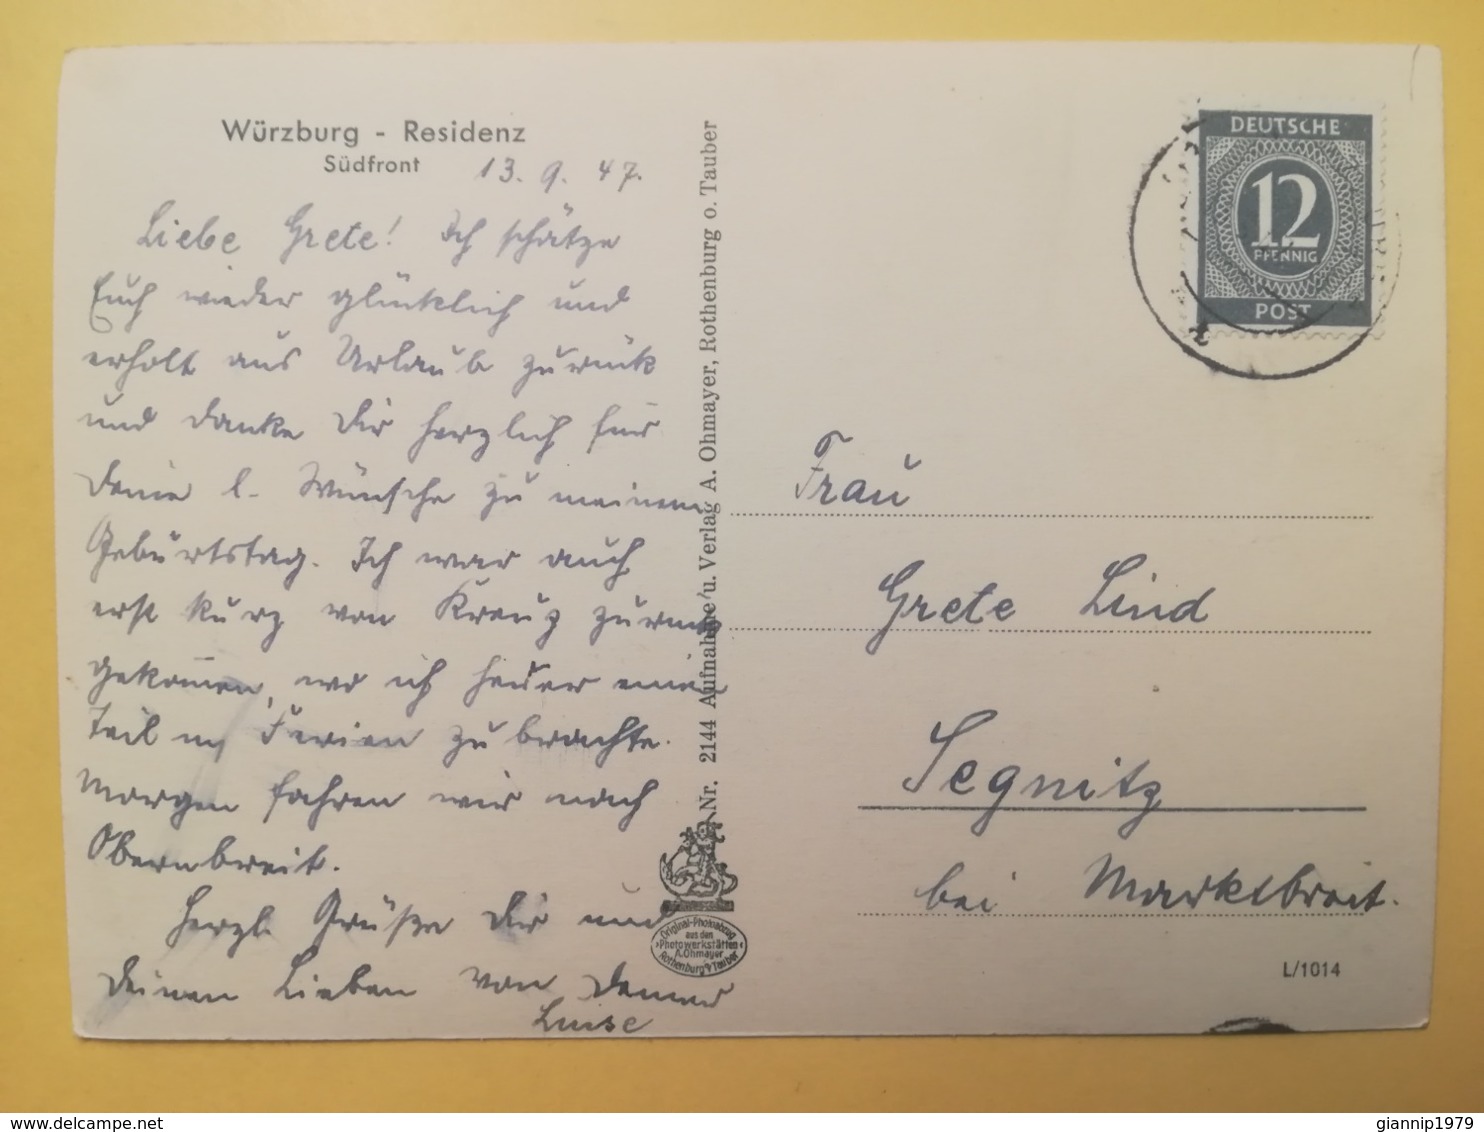 Würzburg - Residenz
Südfront
13. 9. 47.
Liebe Grete! Ich schätze
Euch wieder glücklich und
erholt aus Urlaub zurück
und danke Dir herzlich für
Deine l. Wünsche zu meinem
Geburtstag. Ich war auch
erst kurz von Kreuz zurück
gekommen, wo ich heuer einen
Teil m. Ferien zubrachte.
Morgen fahren wir nach
Obernbreit.
Herzl. Grüße Dir und
Deinen Lieben von Deiner
Luise
Nr. 2144 Aufnahme u. Verlag A. Ohmayer, Rothenburg o. Tauber
Original-Photoabzug
aus den
›Photowerkstätten‹
A. Ohmayer
Rothenburg o/Tauber
DEUTSCHE
12
PFENNIG
POST
Frau
Grete Lind
Segnitz
bei Marktbreit.
L/1014
giannip1979